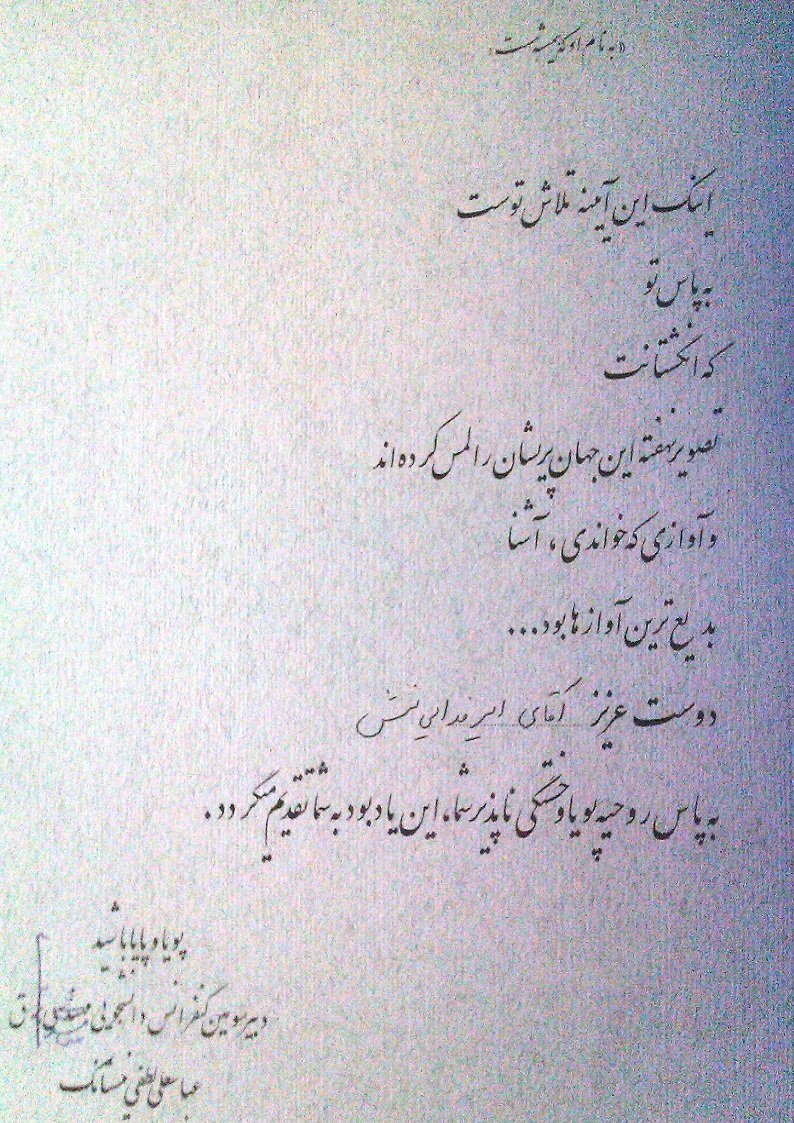 «به نام او که همیشه هست
اینک این آیینه تلاش توست
به پاس تو
که انگشتانت
تصویر نهفته این جهان پریشان را لمس کرده اند
و آوازی که خواندی ، آشنا
بدیع ترین آوازها بود...
دوست عزیز آقای امیر فدایی منش
به پاس روحیه پویا و خستگی ناپذیر شما، این یادبود به شما تقدیم میگردد.
پویا و پایا باشید
دبیر سومین کنفرانس دانشجویی مهندسی برق
عباسعلی لطفی